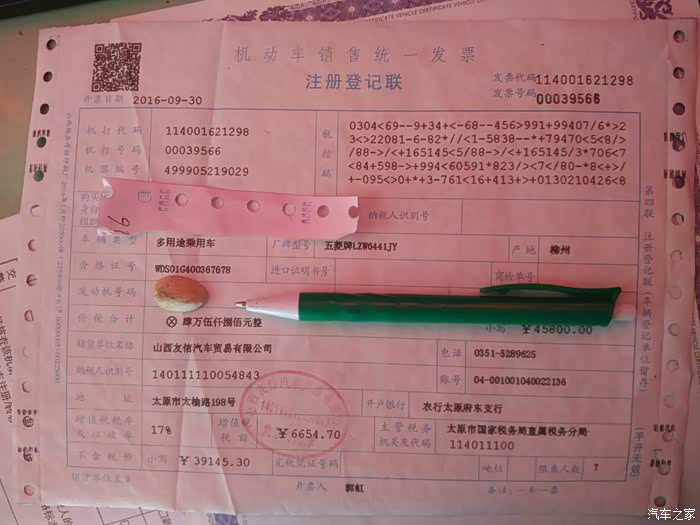 机动车销售统一发票
注册登记联
发票代码 114001621298
发票号码 00039566
开票日期 2016-09-30
机打代码 114001621298
机打号码 00039566
机器编号 499905219029
税控码
0304<69--9+34+<-68--456>991+99407/6*>2
3<>22081-6-82*//<1-5838--*+79470<5<8/>
/88->/<+165145<5/88->/<+165145/3*706<7
<84+598->+994<60591*823/><7</80-*8<+>/
+-095<>0+*+3-761<16+413+>+0130210426<8
16
纳税人识别号
车辆类型 多用途乘用车 厂牌型号 五菱牌LZW6441JY 产地 柳州
合格证号 WDS01G400367678 进口证明书号 商检单号
发动机号码
价税合计 ⊗ 肆万伍仟捌佰元整 小写 ¥45800.00
销货单位名称 山西友信汽车贸易有限公司 电话 0351-5289625
纳税人识别号 140111110054843 账号 04-001001040022136
地址 太原市太榆路198号 开户银行 农行太原府东支行
增值税税率或征收率 17% 增值税税额 ¥6654.70 主管税务机关及代码 太原市国家税务局直属税务分局 114011100
不含税价 小写 ¥39145.30 完税凭证号码 吨位 限乘人数 7
销货单位盖章 开票人 郭虹 备注：一车一票
第四联 注册登记联（车辆登记单位留存）
（手开无效）
汽车之家